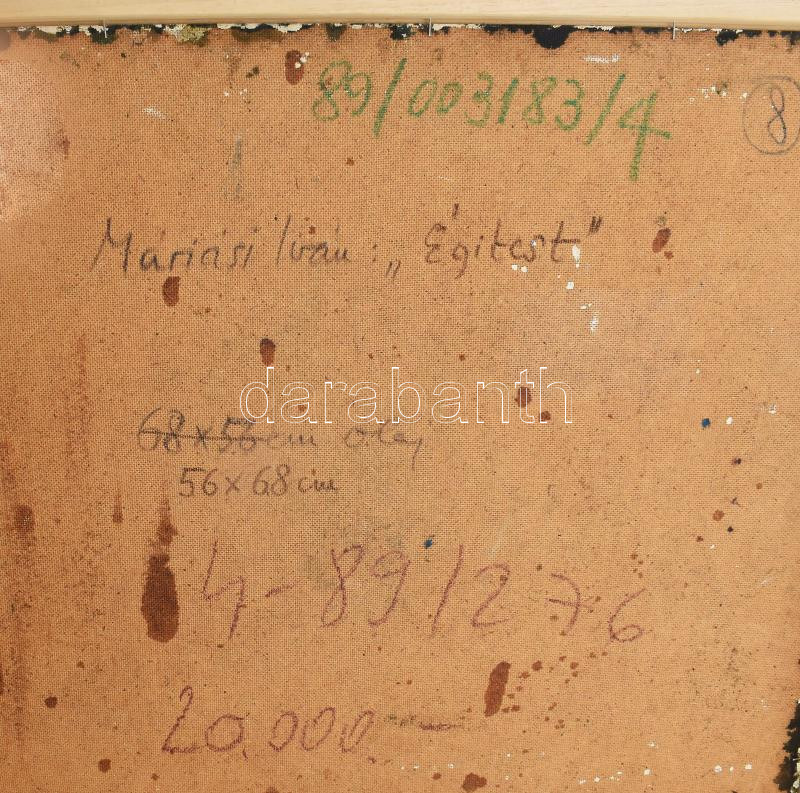 89/003183/4
8
Máriási Iván: „Égitest"
darabanth
68x56 cm olaj
56x68 cm
4-89/276
20.000.-